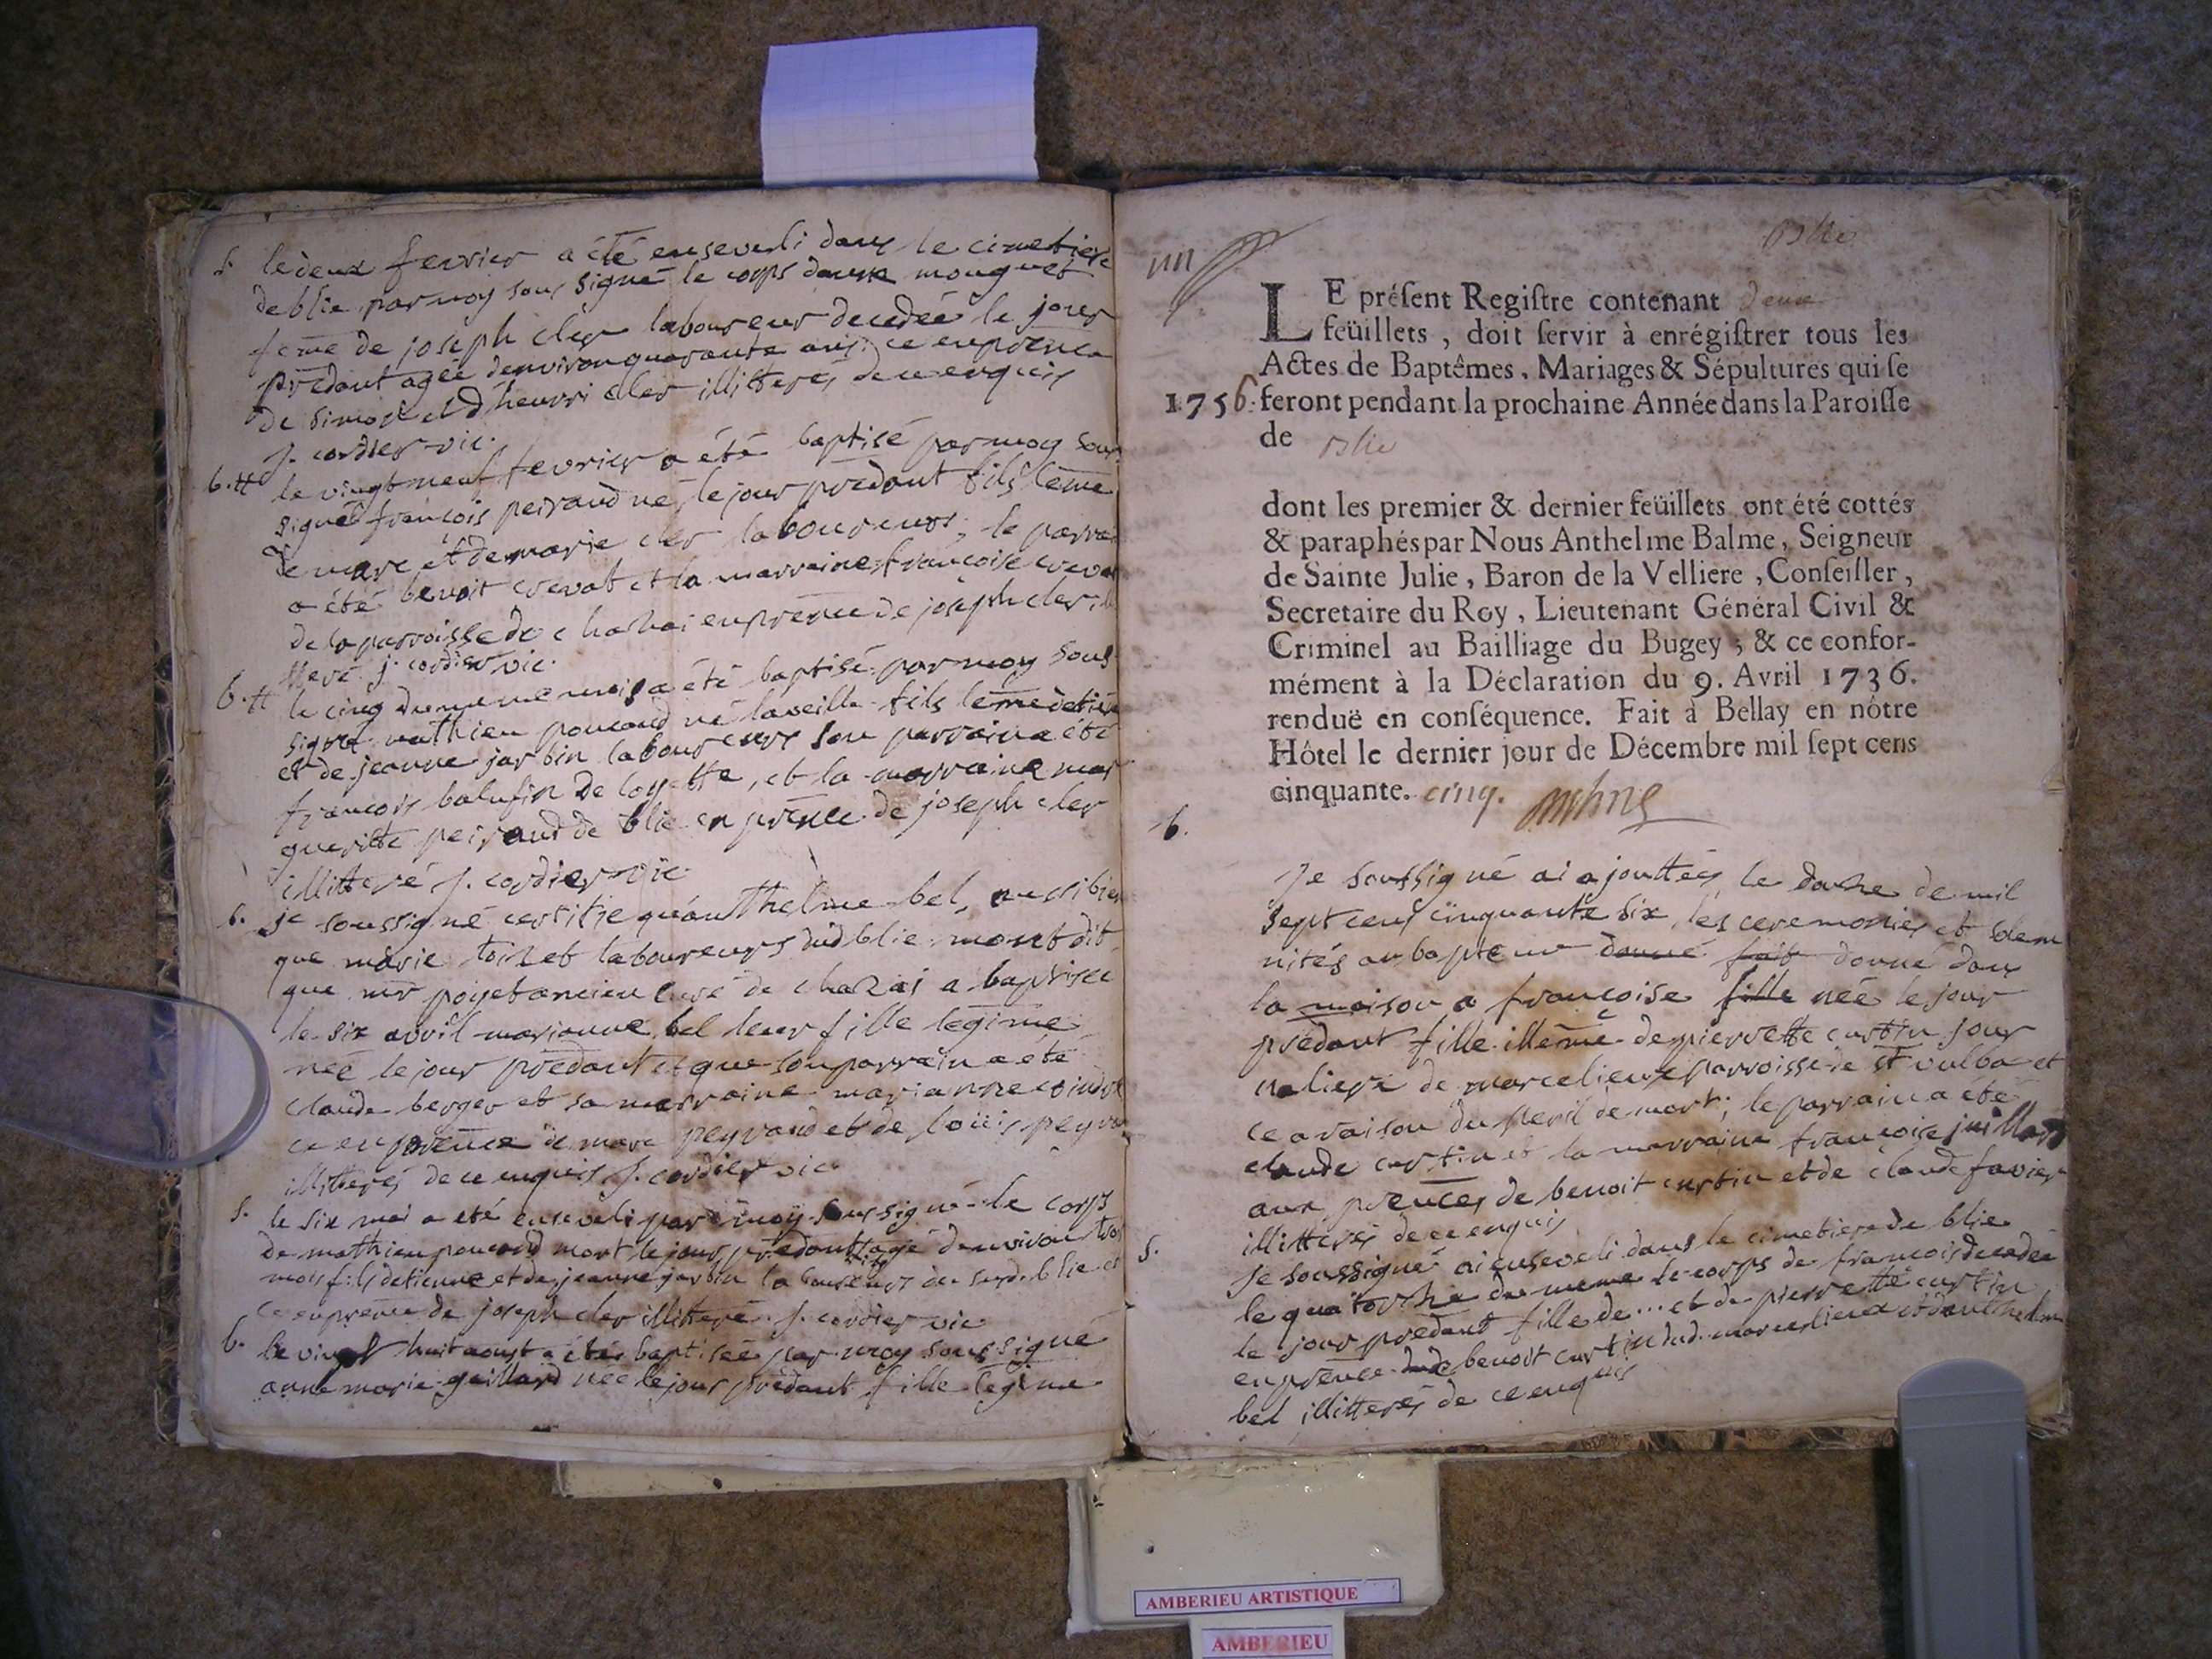 s. le deux fevrier a été enseveli dans le cimetiere
de blie par moy sous signé le corps mouguet
feme de joseph cler laboureur decedée le jour
predant agée denviron quarante ans: ce en prence
de simon et d'henri cler illitterés de ce enquis
j. cordier vic.
b. le vingt neuf fevrier a été baptisé par moy sous
signé françois peiraud né le jour predant fils leme
de marc et de marie cler laboureurs, le parra
a été benoit crevat et la marraine françoise creva
de la parroisse de chazai en prence de joseph cler il
tteré j. cordier vic.
b. le cinq du meme mois a été baptisé par moy sous
signé mathieu poncard né la veille fils leme detien
et de jeanne jarbin laboureurs son parrain a été
françois balufin de loyette, et la marraine mar
gueritte peiraud de blie en prence de joseph cler
illitteré j. cordier vic
b. je soussigné certifie qu'anthelme bel, aussi bien
que marie toinet laboureurs dud blie m'ont dit
que mr poijet ancien curé de chazai a baptisée
le six avril marianne bel leur fille legime
née le jour predant et que son parrain a eté
claude berger et sa marraine marianne coindre
ce en prence de marc peyraud et de loüis peyra
illitterés de ce enquis j. cordier vic
s. le six mai a eté enseveli par moy sous signé le corps
de mathieu poncard mort le jour predant agé denviron trois
mois fils detienne et de jeanne jarbin laboureurs de blie et
ce en prence de joseph cler illitteré j. cordier vic
b. le vingt huit aoust a été baptisée par moy sous signé
anne marie gaillard née le jour predant fille legime
un
Blie
LE préſent Regiſtre contenant deux
feüillets, doit ſervir à enrégiſtrer tous les
Actes de Baptêmes, Mariages & Sépultures qui ſe
1756. feront pendant la prochaine Année dans la Paroiſſe
de Blie
dont les premier & dernier feüillets ont été cottés
& paraphés par Nous Anthelme Balme, Seigneur
de Sainte Julie, Baron de la Velliere, Conſeiller,
Secretaire du Roy, Lieutenant Général Civil &
Criminel au Bailliage du Bugey; & ce confor-
mément à la Déclaration du 9. Avril 1736.
renduë en conſéquence. Fait à Bellay en nôtre
Hôtel le dernier jour de Décembre mil ſept cens
cinquante. cinq.
b.
Je soussigné ai ajouttées le douze de mil
sept cens cinquante six, les ceremonies et solem
nités au bapteme donné fait donné dans
la maison a françoise fille née le jour
predant fille illeme de pierrette curtin jour
naliere de marcelieux parroisse de st vulba et
ce a raison du peril de mort; le parrain a été
claude curtin et la marraine françoise juillard
aux prences de benoit curtin et de claude favier
illitterés de ce enquis
s. Je soussigné ai enseveli dans le cimetiere de blie
le quatorze du meme le corps de francois decedée
le jour predant fille de ... et de pierrette curtin
en prence dud benoit curtin dud. marcelieux et d'anthelme
bel illitterés de ce enquis
AMBERIEU ARTISTIQUE
AMBERIEU